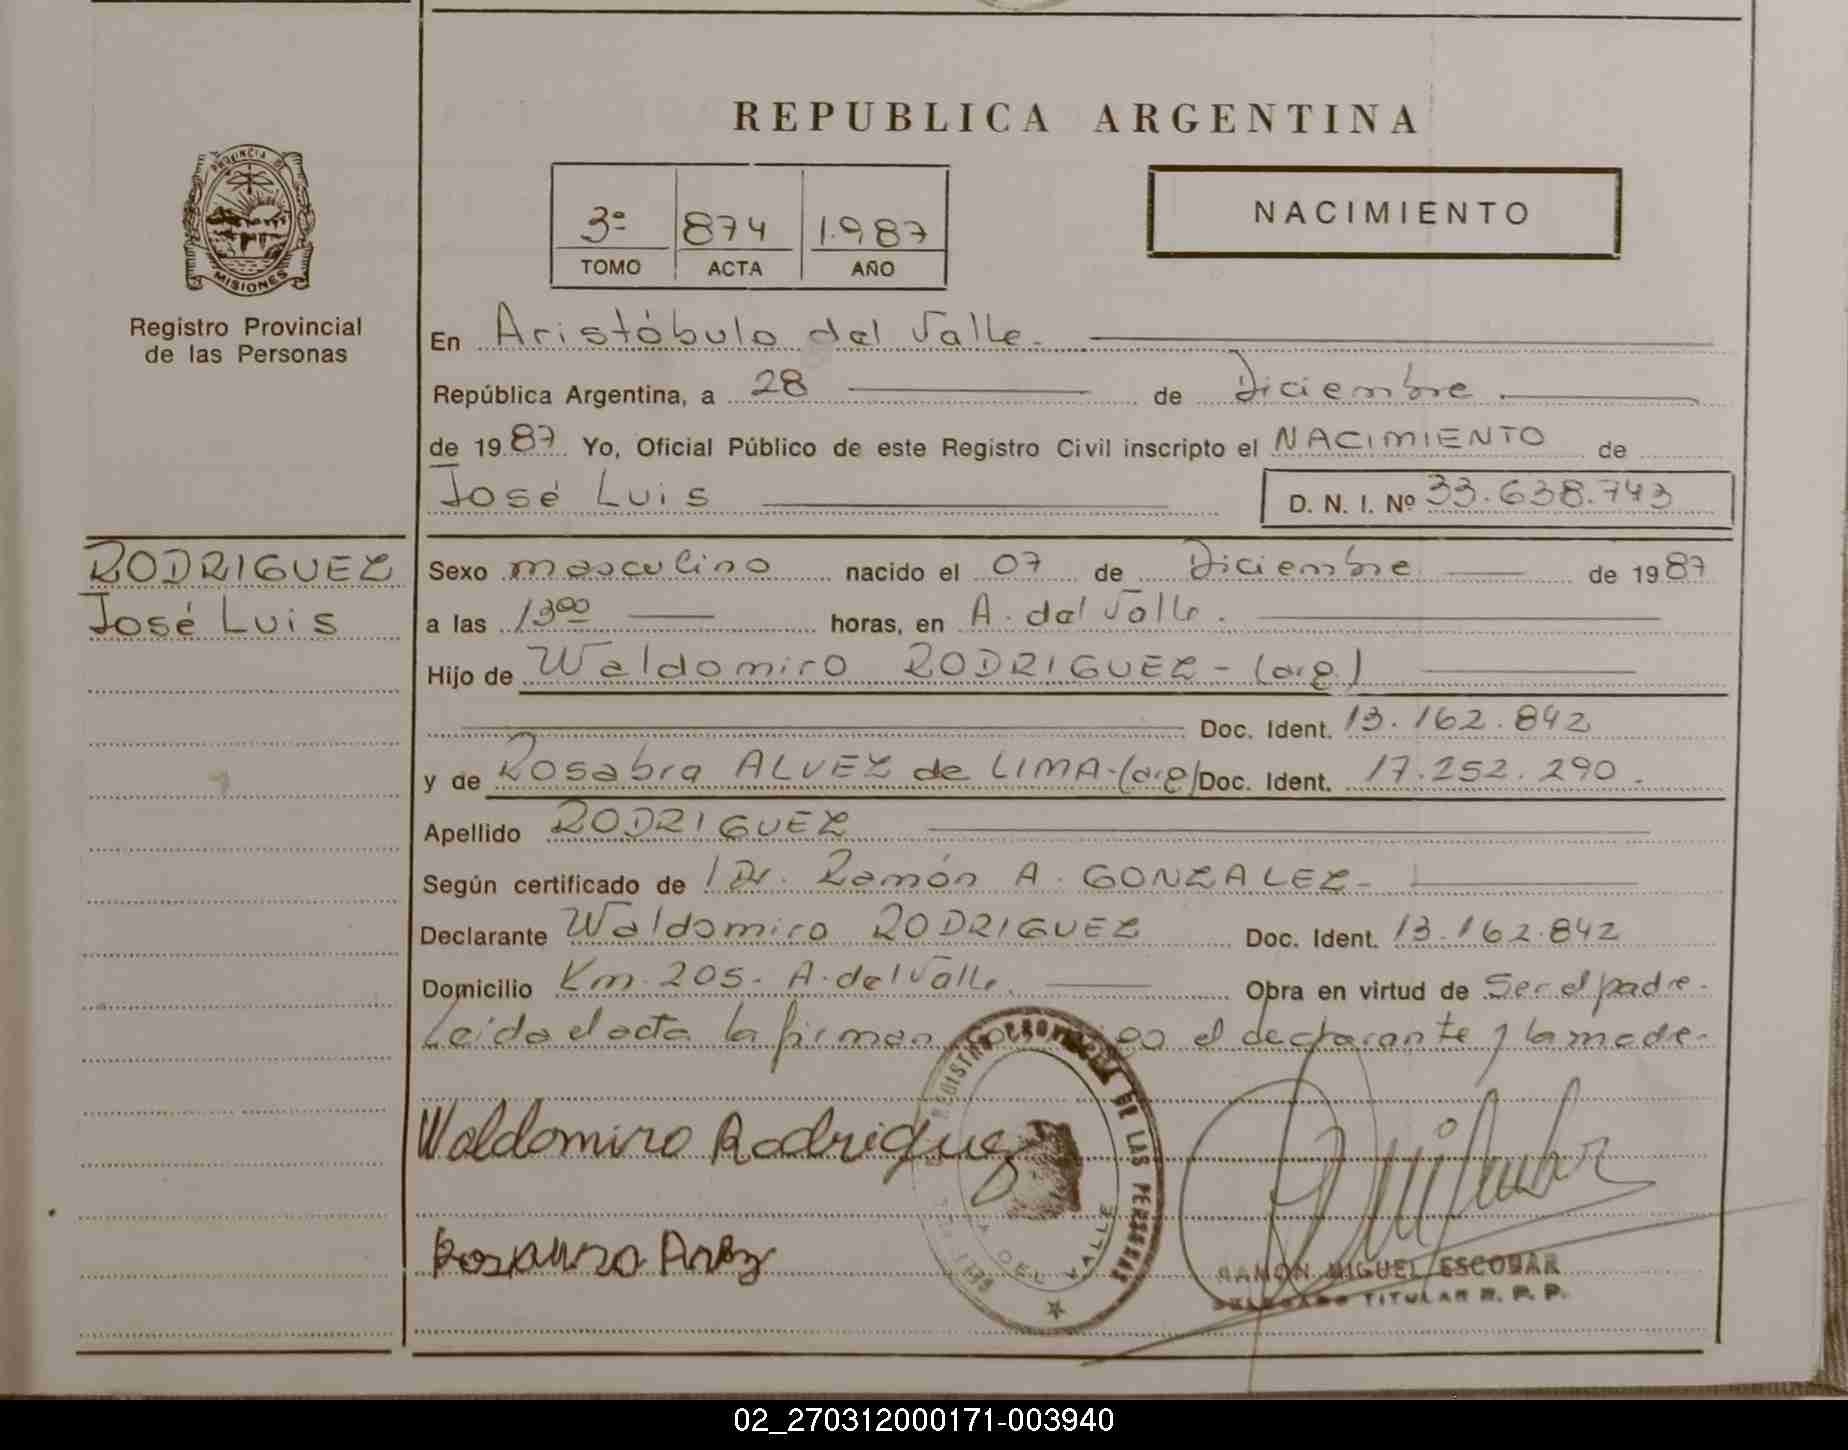 REPUBLICA ARGENTINA
PROVINCIA DE
MISIONES
Registro Provincial
de las Personas
3º 874 1.987
TOMO ACTA AÑO
NACIMIENTO
En Aristóbulo del Valle.
República Argentina, a 28 de Diciembre
de 19 87 Yo, Oficial Público de este Registro Civil inscripto el NACIMIENTO de
José Luis D. N. I. Nº 33.638.743
RODRIGUEZ
José Luis
Sexo masculino nacido el 07 de Diciembre de 19 87
a las 13 00 horas, en A. del Valle.
Hijo de Waldomiro RODRIGUEZ - (arg)
Doc. Ident. 13.162.842
y de Rosabra ALVEZ de LIMA-(arg) Doc. Ident. 17.252.290.
Apellido RODRIGUEZ
Según certificado de Dr. Ramón A. GONZALEZ-
Declarante Waldomiro RODRIGUEZ Doc. Ident. 13.162.842
Domicilio Km 205- A. del Valle. Obra en virtud de Ser el padre.
Leída el acta la firman el declarante y la madre-
Waldomiro Rodriguez
REGISTRO PROVINCIAL DE LAS PERSONAS
DEL VALLE
RAMON MIGUEL ESCOBAR
DELEGADO TITULAR R. P. P.
02_270312000171-003940